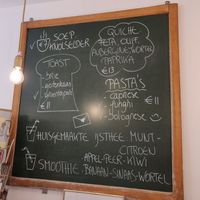 SOEP
KNOLSELDER
QUICHE
FETA OLIJF
AUBERGINE-WORTEL
PAPRIKA
€13
TOAST
- brie
€11
PASTA'S
- caprese
- funghi
- bolognese
€11
HUISGEMAAKTE IJSTHEE MUNT-
CITROEN
SMOOTHIE APPEL-PEER-KIWI
BANAAN-SINAAS-WORTEL